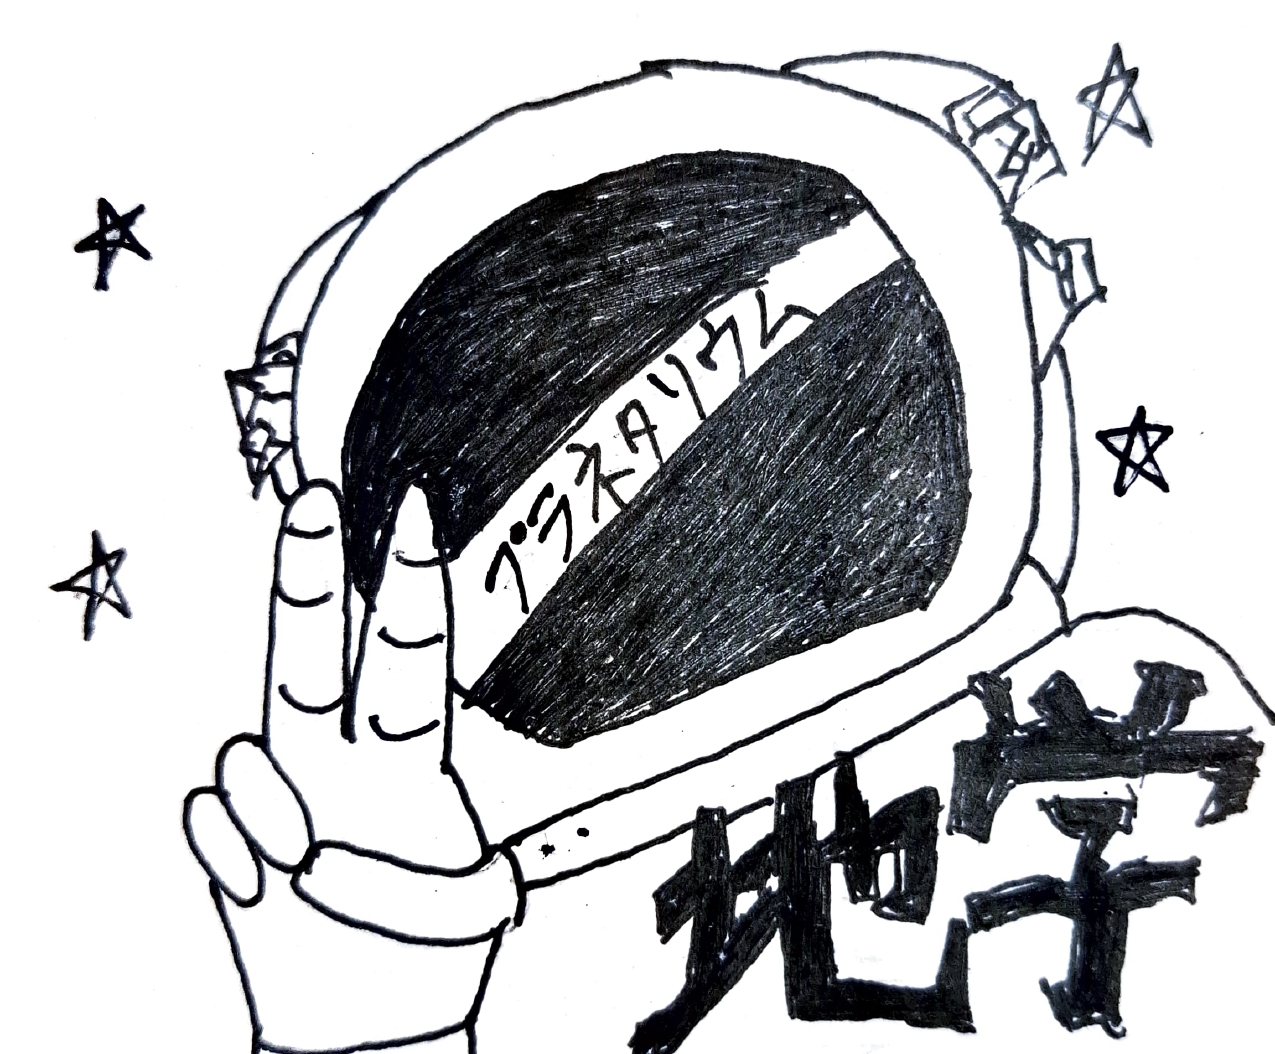 プラネタリウム
地学